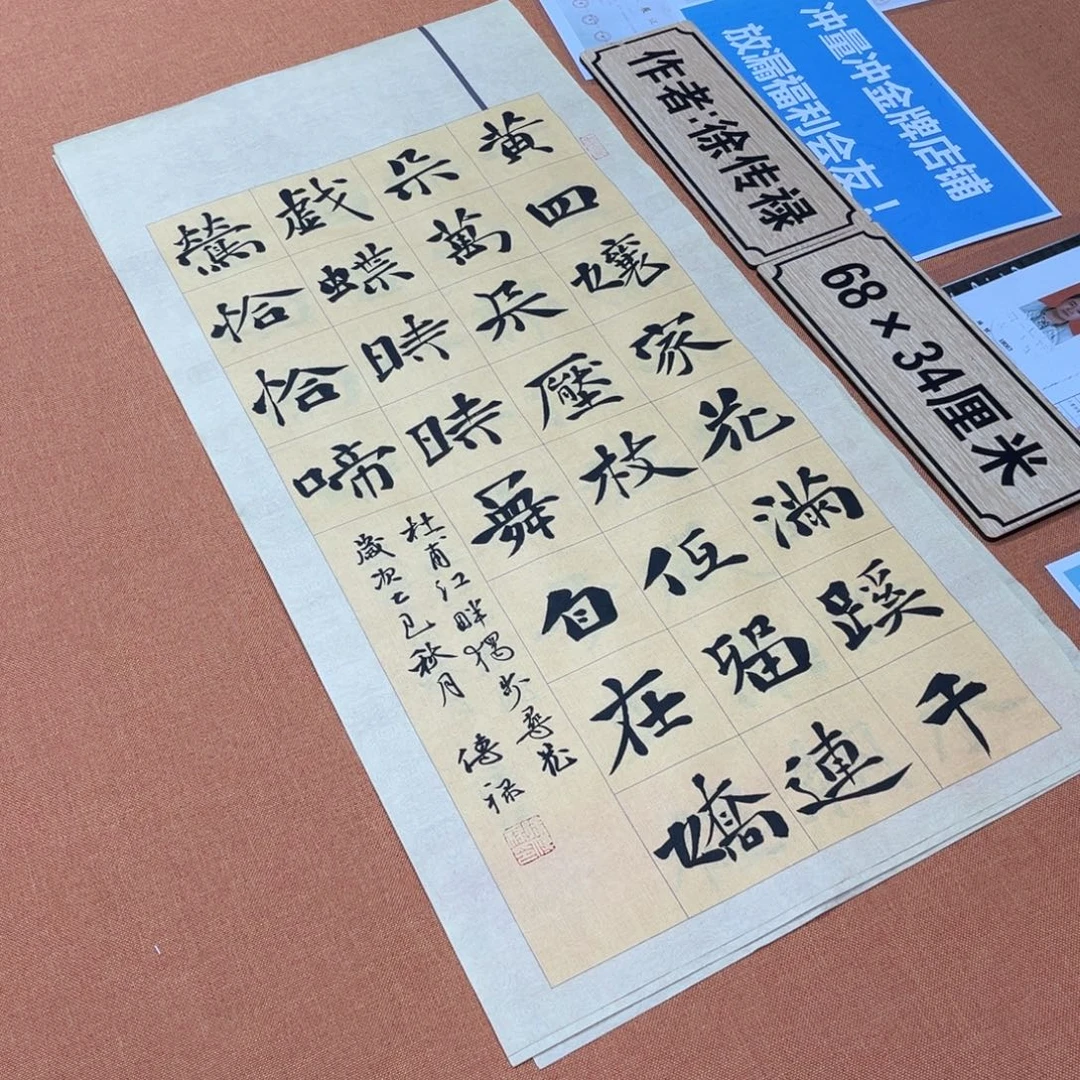 黄四孃家花滿蹊千
朵萬朵壓枝低留連
戲蝶時時舞自在嬌
鶯恰恰啼
杜甫江畔獨步尋花
歲次乙巳秋月 傳禄
作者:徐传禄
68×34厘米
冲量冲金牌店铺
放漏福利会友！